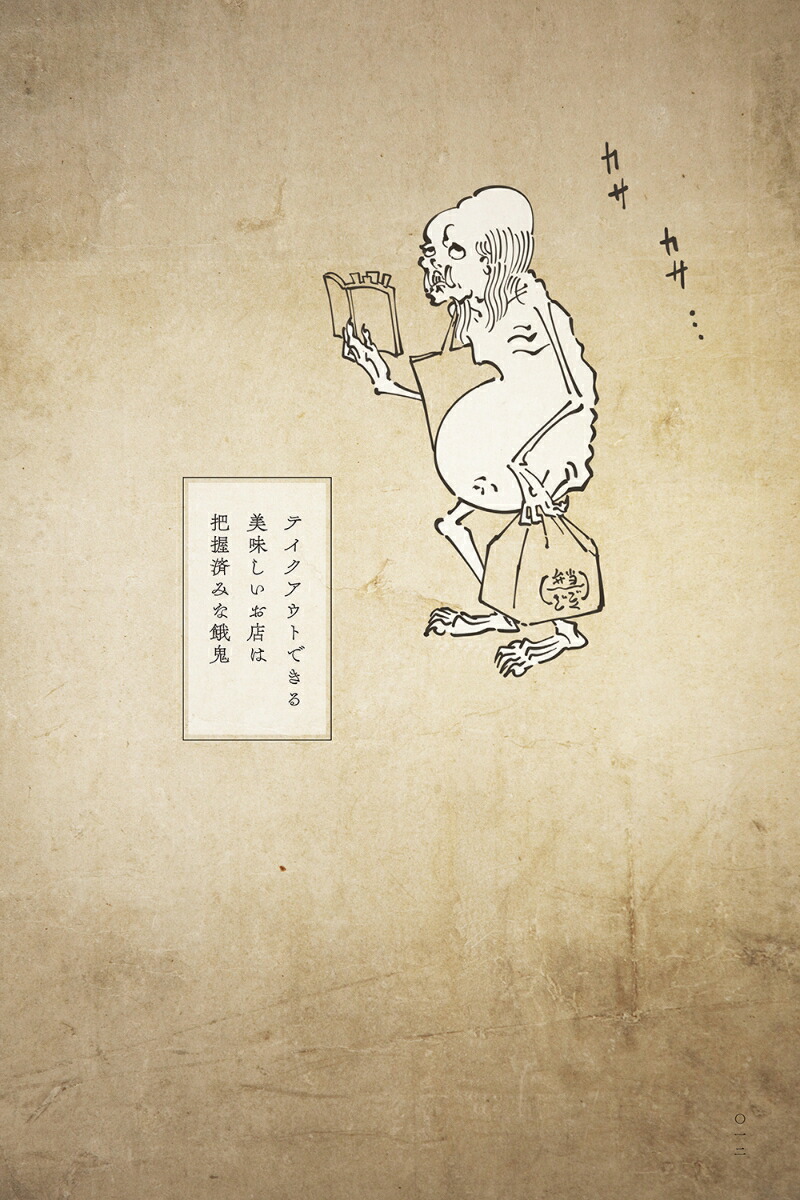 カサ
カサ…
テイクアウトできる
美味しいお店は
把握済みな餓鬼
弁当
〇一二